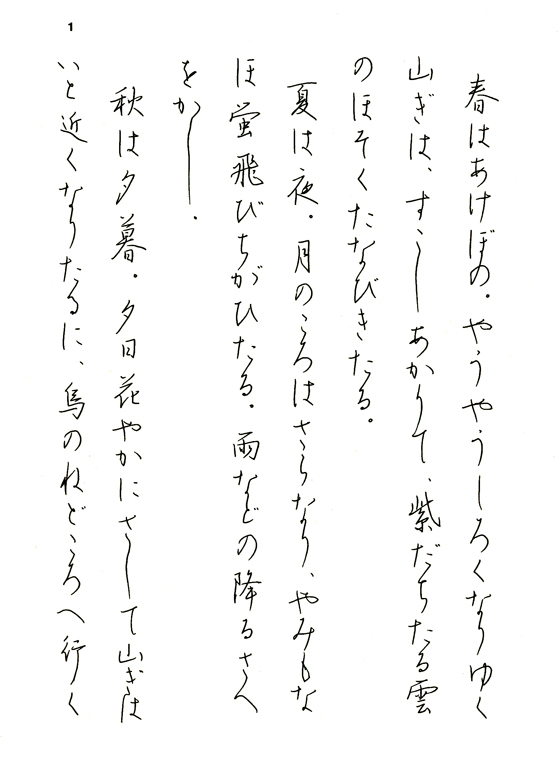 1
春はあけぼの。やうやうしろくなりゆく
山ぎは、すこしあかりて、紫だちたる雲
のほそくたなびきたる。
夏は夜。月のころはさらなり、やみもな
ほ蛍飛びちがひたる。雨などの降るさへ
をかし。
秋は夕暮。夕日花やかにさして山ぎは
いと近くなりたるに、烏のねどころへ行く